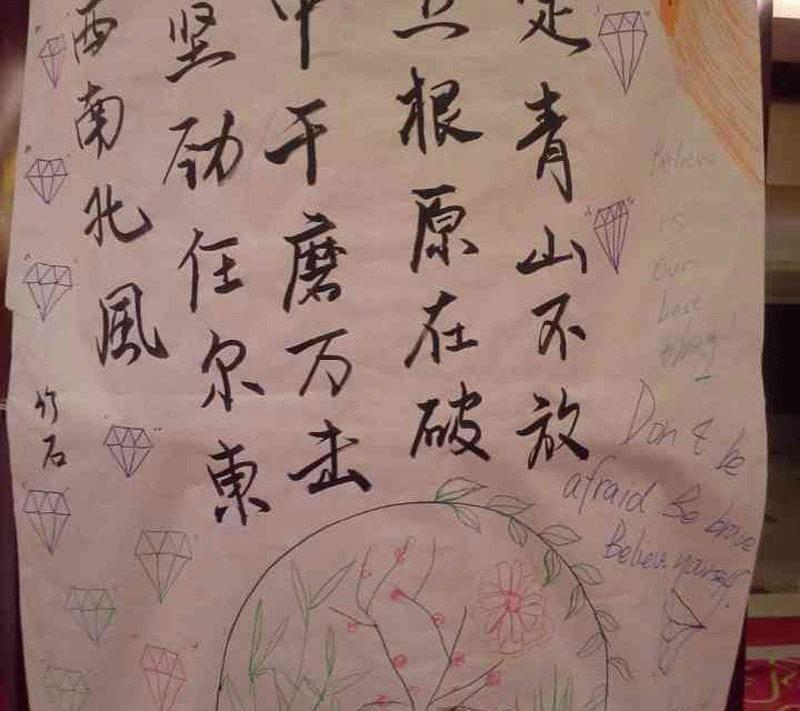 定青山不放
立根原在破
中千磨万击
坚劲任尔東
西南北風
竹石
Believe
is
our
Don't be
afraid Be brave
Believe yourself.